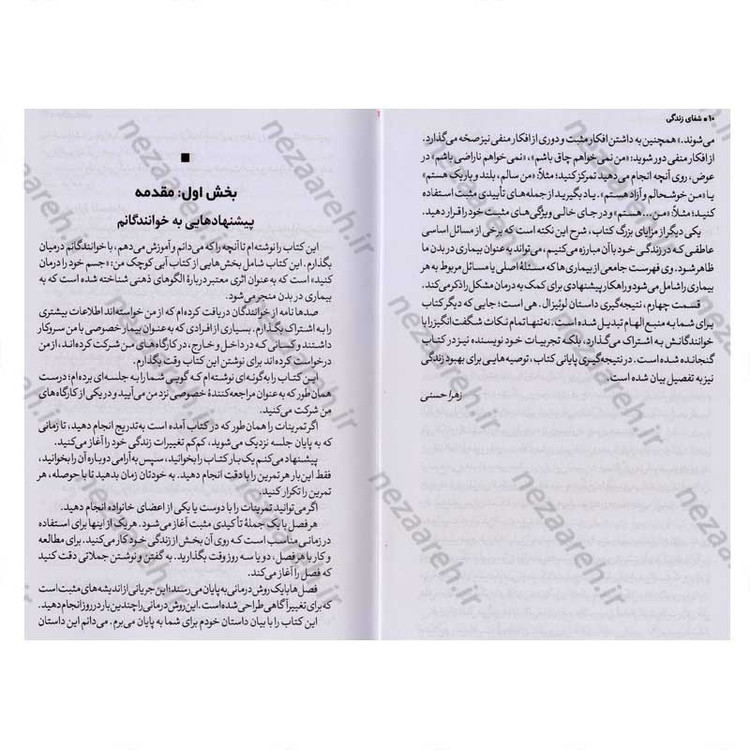 ۱۰ ■ شفای زندگی
می‌شوند.» همچنین به داشتن افکار مثبت و دوری از افکار منفی نیز صحّه می‌گذارد.
از افکار منفی دور شوید: «من نمی‌خواهم چاق باشم»، «نمی‌خواهم ناراضی باشم» در
عوض، روی آنچه انجام می‌دهید تمرکز کنید؛ مثلاً: «من سالم، بلند و باریک هستم»
یا «من خوشحالم و آزاد هستم». یاد بگیرید از جمله‌های تأییدی مثبت استفاده
کنید؛ مثلاً: «من... هستم» و در جای خالی ویژگی‌های مثبت خود را قرار دهید.
یکی دیگر از مزایای بزرگ کتاب، شرح این نکته است که برخی از مسائل اساسی
عاطفی که در زندگی خود با آن مبارزه می‌کنیم، می‌تواند به‌عنوان بیماری در بدن ما
ظاهر شود. وی فهرست جامعی از بیماری‌ها که مسئلهٔ اصلی یا مسائل مربوط به هر
بیماری را شامل می‌شود و راهکار پیشنهادی برای کمک به درمان مشکل را ذکر می‌کند.
قسمت چهارم، نتیجه‌گیری داستان لوئیزال. هی است؛ جایی که دیگر کتاب
برای شما به منبع الهام تبدیل شده است. نه‌تنها تمام نکات شگفت‌انگیز را با
خوانندگانش به اشتراک می‌گذارد، بلکه تجربیات خود نویسنده نیز در کتاب
گنجانده شده است. در نتیجه‌گیری پایانی کتاب، توصیه‌هایی برای بهبود زندگی
نیز به تفصیل بیان شده است.
زهرا حسنی
■
بخش اول: مقدمه
پیشنهادهایی به خوانندگانم
این کتاب را نوشته‌ام تا آنچه را که می‌دانم و آموزش می‌دهم، با خوانندگانم درمیان
بگذارم. این کتاب شامل بخش‌هایی از کتاب آبی کوچک من: «جسم خود را درمان
کنید» است که به‌عنوان اثری معتبر دربارهٔ الگوهای ذهنی شناخته شده است که به
بیماری در بدن منجر می‌شود.
صدها نامه از خوانندگان دریافت کرده‌ام که از من خواسته‌اند اطلاعات بیشتری
را به اشتراک بگذارم. بسیاری از افرادی که به‌عنوان بیمار خصوصی با من سروکار
داشتند و کسانی که در داخل و خارج، در کارگاه‌های من شرکت کرده‌اند، از من
درخواست کرده‌اند برای نوشتن این کتاب وقت بگذارم.
این کتاب را به‌گونه‌ای نوشته‌ام که گویی شما را به جلسه‌ای برده‌ام؛ درست
همان‌طور که به‌عنوان مراجعه‌کنندهٔ خصوصی نزد من می‌آیید و در یکی از کارگاه‌های
من شرکت می‌کنید.
اگر تمرینات را همان‌طور که در کتاب آمده است به‌تدریج انجام دهید، تا زمانی
که به پایان جلسه نزدیک می‌شوید، کم‌کم تغییرات زندگی خود را آغاز می‌کنید.
پیشنهاد می‌کنم یک بار کتاب را بخوانید، سپس به‌آرامی دوباره آن را بخوانید،
فقط این‌بار هر تمرین را با دقت انجام دهید. به خودتان زمان بدهید تا با حوصله، هر
تمرین را تکرار کنید.
اگر می‌توانید تمرینات را با دوست یا یکی از اعضای خانواده انجام دهید.
هر فصل با یک جملهٔ تأکیدی مثبت آغاز می‌شود. هر یک از اینها برای استفاده
در زمانی مناسب است که روی آن بخش از زندگی خود کار می‌کنید. برای مطالعه
و کار با هر فصل، دو یا سه روز وقت بگذارید. به گفتن و نوشتن جملاتی دقت کنید
که فصل را آغاز می‌کند.
فصل‌ها با یک روش درمانی به پایان می‌رسند؛ این جریانی از اندیشه‌های مثبت است
که برای تغییر آگاهی طراحی شده است. این روش درمانی را چندین بار در روز انجام دهید.
این کتاب را با بیان داستان خودم برای شما به پایان می‌برم. می‌دانم این داستان
nezaareh.ir
nezaareh.ir
nezaareh.ir
nezaareh.ir
nezaareh.ir
nezaareh.ir